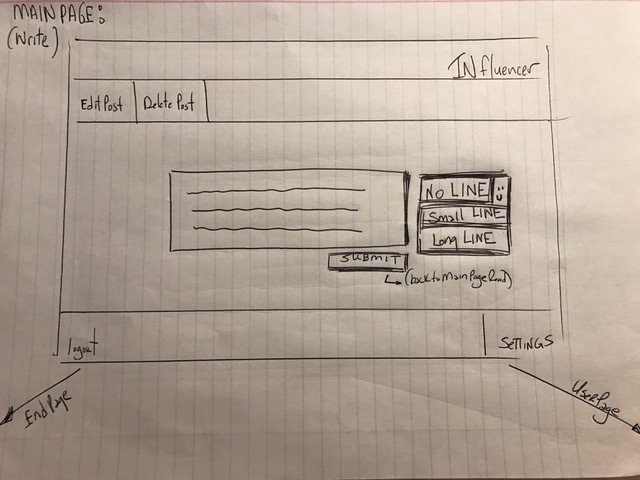 MAIN PAGE:
(Write)
INfluencer
Edit Post
Delete Post
NO LINE
Small LINE
Long LINE
SUBMIT
(back to Main Page Read)
logout
SETTINGS
End Page
User Page